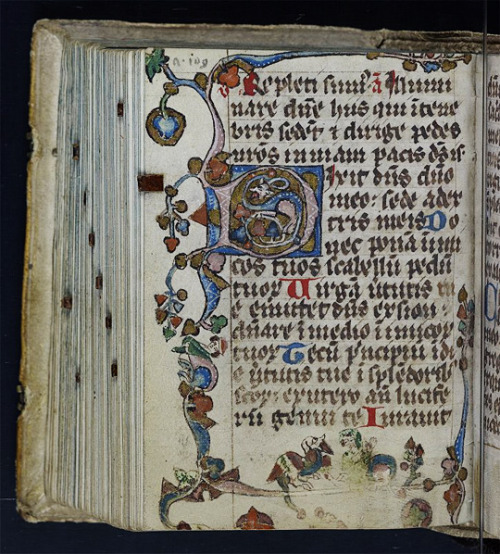 a. 109
Repleti sunt. a Illumi
nare dñe hiis qui ī tene
bris sedēt ⁊ dirige pedes
nr̄os in uiam pacis
Dixit dñs dño
meo: sede a dex
tris meis Do
nec ponā inimi
cos tuos scabellū pedū
tuor Uirgā uirtutis
emittet dñs ex sion:
dñare ī medio inimicor
tuor Tecū p̄ncipiū ī di
e uirtutis tue ī splēdorib
scor: ex utero añ lucife
rū genui te Iurauit